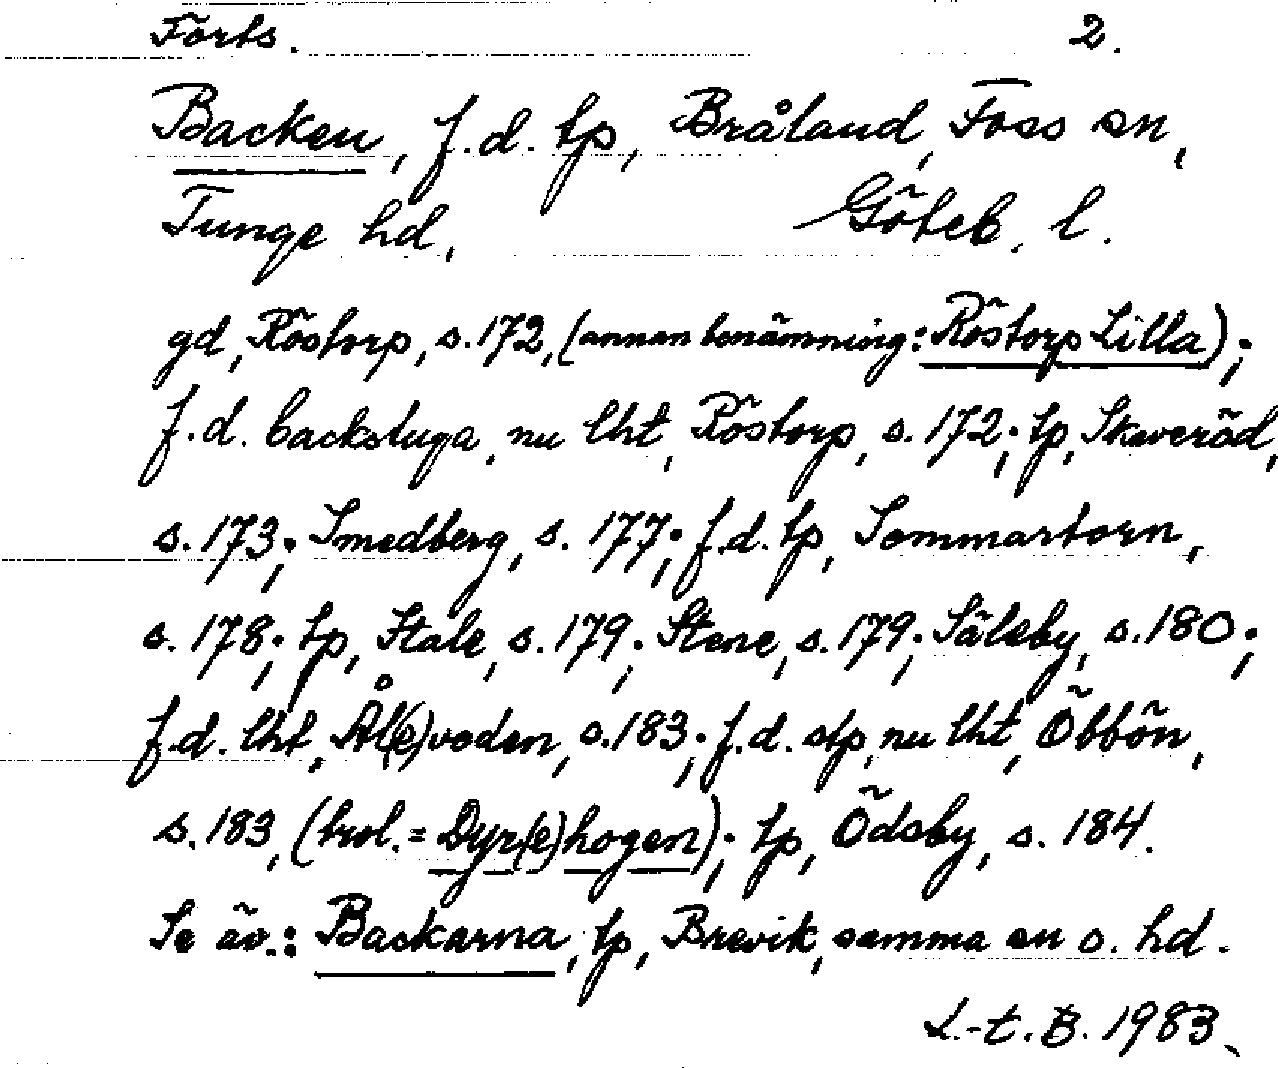 Forts. 2.
Backen, f.d. tp, Bråland, Foss sn,
Tunge hd, Göteb. l.
gd, Röstorp, s.172, (annan benämning: Röstorp Lilla);
f.d. backstuga, nu lht, Röstorp, s.172; tp, Skeveröd,
s.173; Smedberg, s. 177; f.d. tp, Sommartorn,
s.178; tp, Stale, s.179; Stene, s.179; Säleby, s.180;
f.d. lht, Ål(e)voden, s.183; f.d. stp, nu lht, Öbbön,
s.183, (trol.= Dyr(e)hogen); tp, Ödsby, s. 184.
Se äv.: Backarna, tp, Brevik, samma sn o. hd.
L.-t. B. 1983.